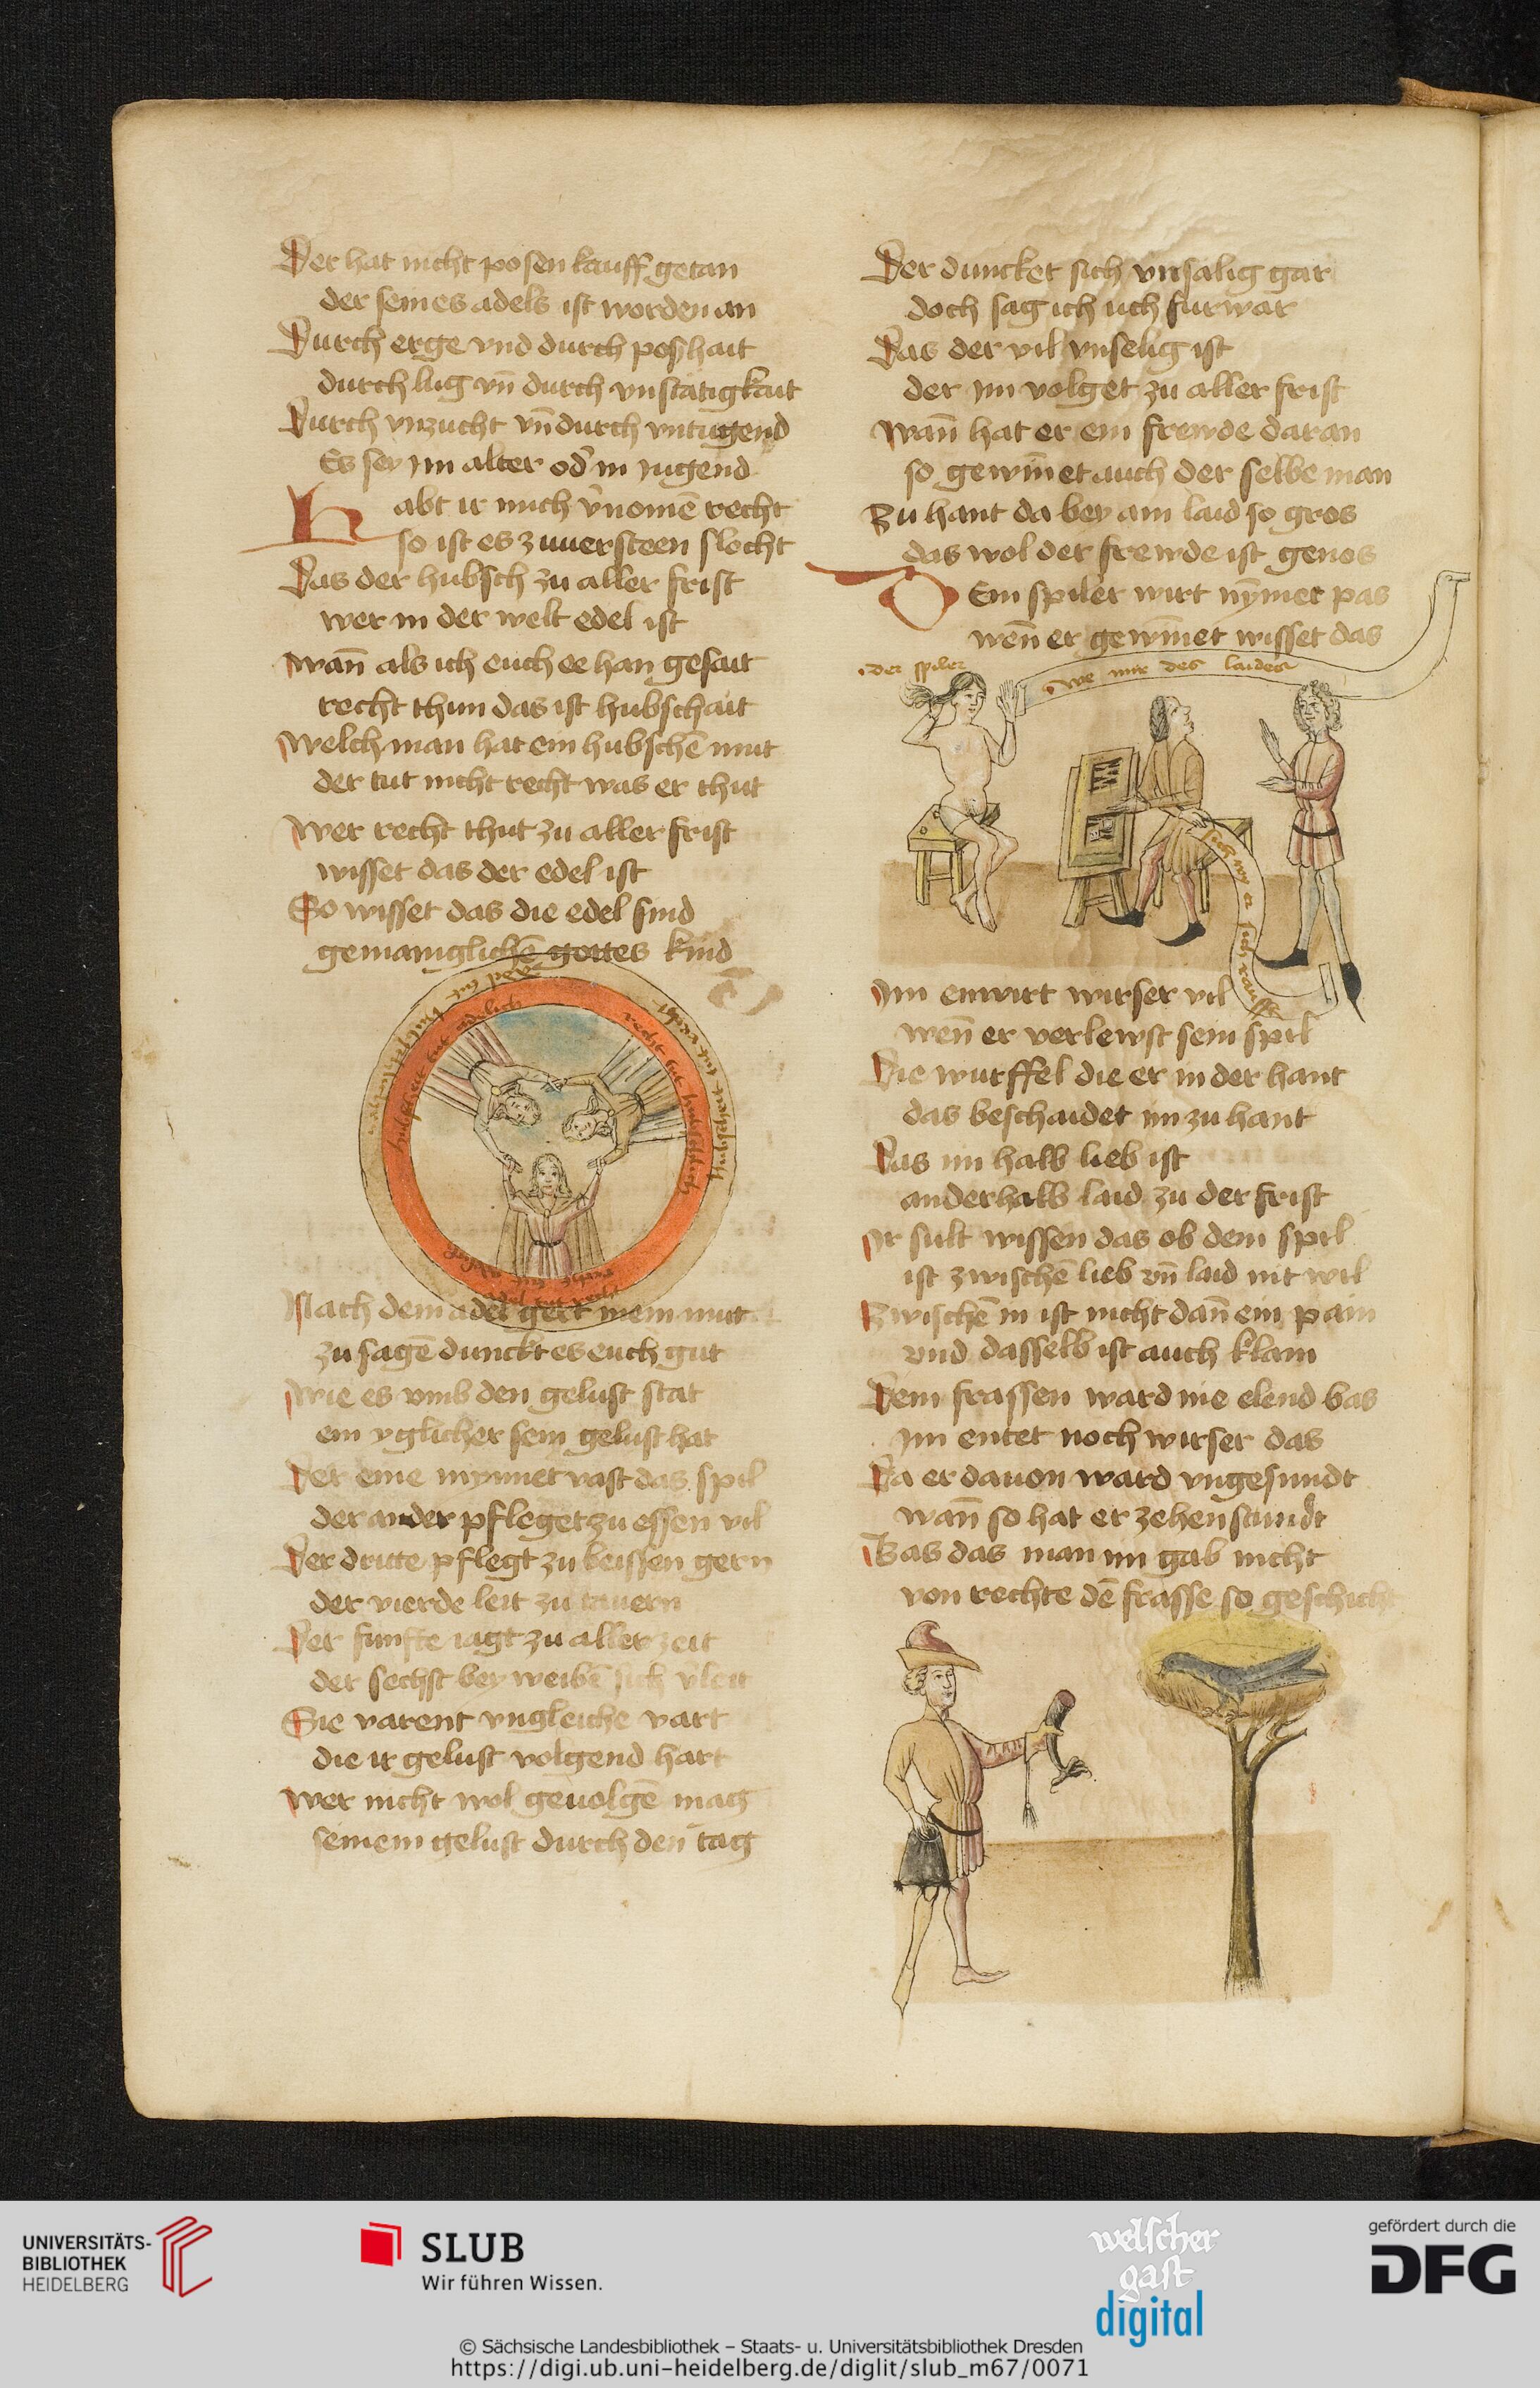 Der hat nicht posen kauff getan
der seines adels ist worden an
Durch erge vnd durch poshait
durch lug vn̄ durch vnstatigkait
Durch vnzucht vn̄ durch vntugend
Es sey jm alter od' in jugend
Habt ir mich v'nomē recht
so ist es zuuersteen slecht
Das der hubsch zu aller frist
wer in der welt edel ist
wan̄ als ich euch ee han gesait
recht thun das ist hubschait
welch man hat ein hubschē mut
der tut nicht recht was er thut
wer recht thut zu aller frist
wisset das der edel ist
So wisset das die edel sind
gemainglichē gottes kind
adel tut
hubscheit tut adelich
recht tut hubschlich
hubscheit tut recht
recht tut adel
adel tut recht
Nach dem adel gert mein mut
zu sagē dunckt es euch gut
wie es vmb den gelust stat
ein yglicher sein gelust hat
Der eine mynnet vast das spil
der ander pfleget zu essen vil
Der dritte pflegt zu beissen gern
der vierde leit zu tauern
Der funfte iagt zu aller zeit
der sechst bey weibē sich v'leit
Sie varent vngleiche vart
die ir gelust volgend hart
wer nicht wol geuolgē mag
seinem gelust durch den tag
Der duncket sich vnsalig gar
doch sag ich uch furwar
Das der vil vnselig ist
der jm volget zu aller frist
wan̄ hat er ein frewde daran
so gewin̄et auch der selbe man
Zu hant da bey ain laid so gros
das wol der frewde ist genos
Dem spiler wirt nȳmer pas
wen̄ er gewin̄et wisset das
der spiler
we mir des laides
sich wy er sich rauff
Jm enwirt wirser vil
wen̄ er verlewst sein spil
Die wurffel die er in der hant
das beschaidet im zu hant
Das im halb lieb ist
anderhalb laid zu der frist
Jr sult wissen das ob dem spil
ist zwischē lieb vn̄ laid nit wil
Zwischē in ist nicht dan̄ ein pain
vnd dasselb ist auch klain
Dem frassen ward nie elend bas
jm entet noch wirser das
Da er dauon ward vngesundt
wan̄ so hat er zehen stundt
Bas das man im gab nicht
von rechte dē frasse so geschicht
UNIVERSITÄTS-
BIBLIOTHEK
HEIDELBERG
SLUB
Wir führen Wissen.
welscher
gast
digital
gefördert durch die
DFG
© Sächsische Landesbibliothek – Staats- u. Universitätsbibliothek Dresden
https://digi.ub.uni-heidelberg.de/diglit/slub_m67/0071